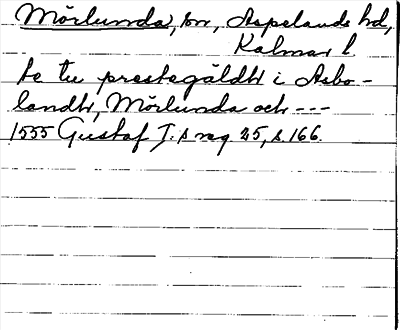 Mörlunda, sn, Aspelands hd,
Kalmar l
te tu prestegäldh i Asbo-
landh, Mörlunda och ---
1555 Gustaf I:s reg 25, s. 166.